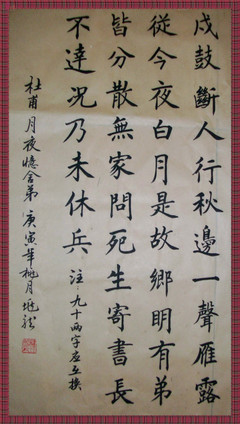 戍鼓斷人行秋邊一聲雁露
從今夜白月是故鄉明有弟
皆分散無家問死生寄書長
不達況乃未休兵 注:九十兩字应互换
杜甫月夜憶舍弟 庚寅年桃月